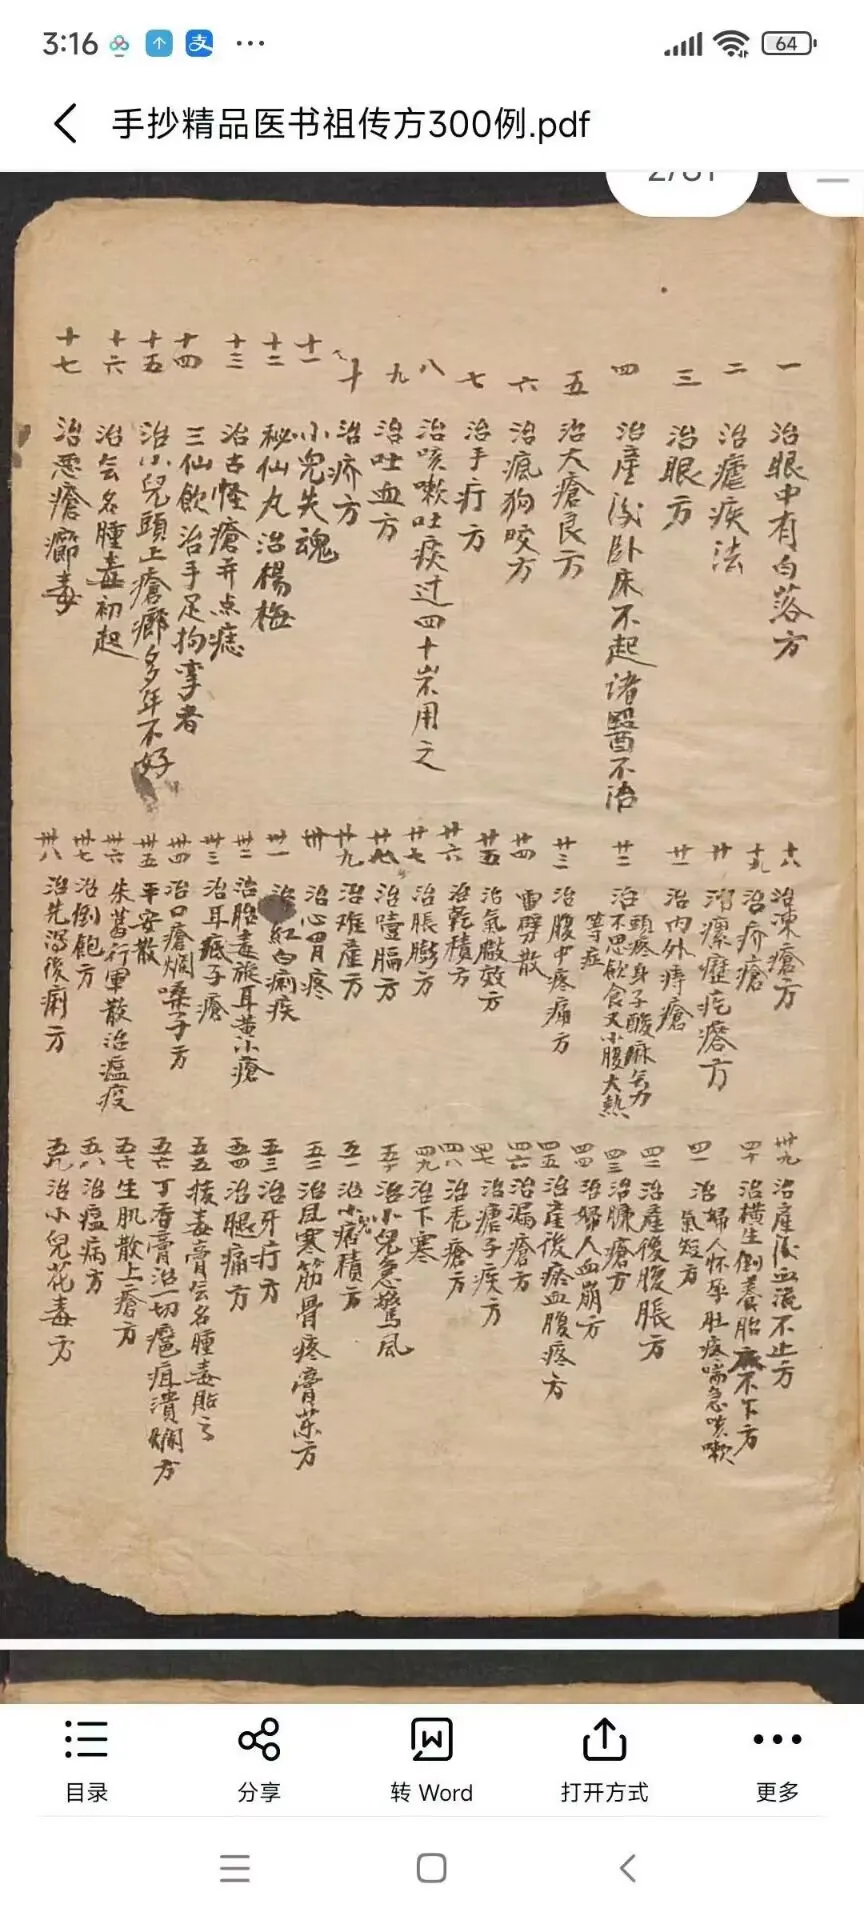 3:16
64
手抄精品医书祖传方300例.pdf
一 治眼中有白落方
二 治瘧疾法
三 治眼方
四 治產後卧床不起诸醫不治
五 治大瘡良方
六 治瘋狗咬方
七 治手疔方
八 治咳嗽吐痰过四十岁用之
九 治吐血方
十 治疥方
十一 小兒失魂
十二 秘仙丸治楊梅
十三 治古怪瘡并点痣
十四 三仙飲治手足拘挛者
十五 治小兒頭上瘡癤多年不好
十六 治无名腫毒初起
十七 治恶瘡癤毒
十八 治凍瘡方
十九 治疥瘡
廿 瘰癧疙瘩方
廿一 治内外痔瘡
廿二 治頭疼身子酸麻无力
不思飲食又小腹大熱
等症
廿三 治腹中疼痛方
廿四 雷劈散
廿五 治氣臌效方
廿六 治乾積方
廿七 治脹膨方
廿八 治噎膈方
廿九 治难產方
卅 治心胃疼
卅一 治紅白痢疾
卅二 治胎毒旋耳黄小瘡
卅三 治耳底子瘡
卅四 治口瘡爛嗓子方
卅五 平安散
卅六 朱葛行軍散治瘟疫
卅七 治倒飽方
卅八 治先瀉後痢方
卅九 治產後血流不止方
四十 治横生倒養胎不下方
四一 治婦人怀孕肚疼喘急咳嗽
氣短方
四二 治產後腹脹方
四三 治臁瘡方
四四 治婦人血崩方
四五 治產後瘀血腹疼方
四六 治漏瘡方
四七 治瘩子疾方
四八 治禿瘡方
四九 治下寒
五十 治小兒急驚风
五一 治小兒痞積方
五二 治风寒筋骨疼膏药方
五三 治牙疔方
五四 治腿痛方
五五 拔毒膏无名腫毒貼方
五六 丁香膏治一切瘡疽潰爛方
五七 生肌散上瘡方
五八 治瘟病方
五九 治小兒花毒方
目录
分享
转 Word
打开方式
更多